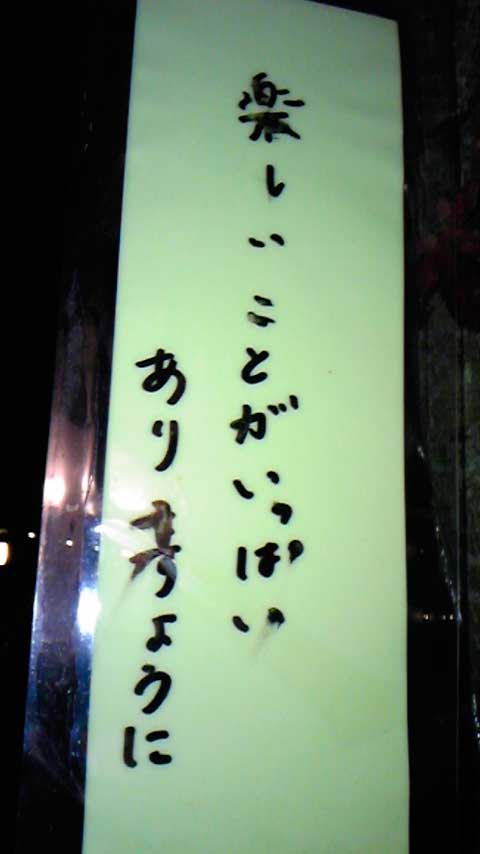 楽しいことがいっぱい
ありますように